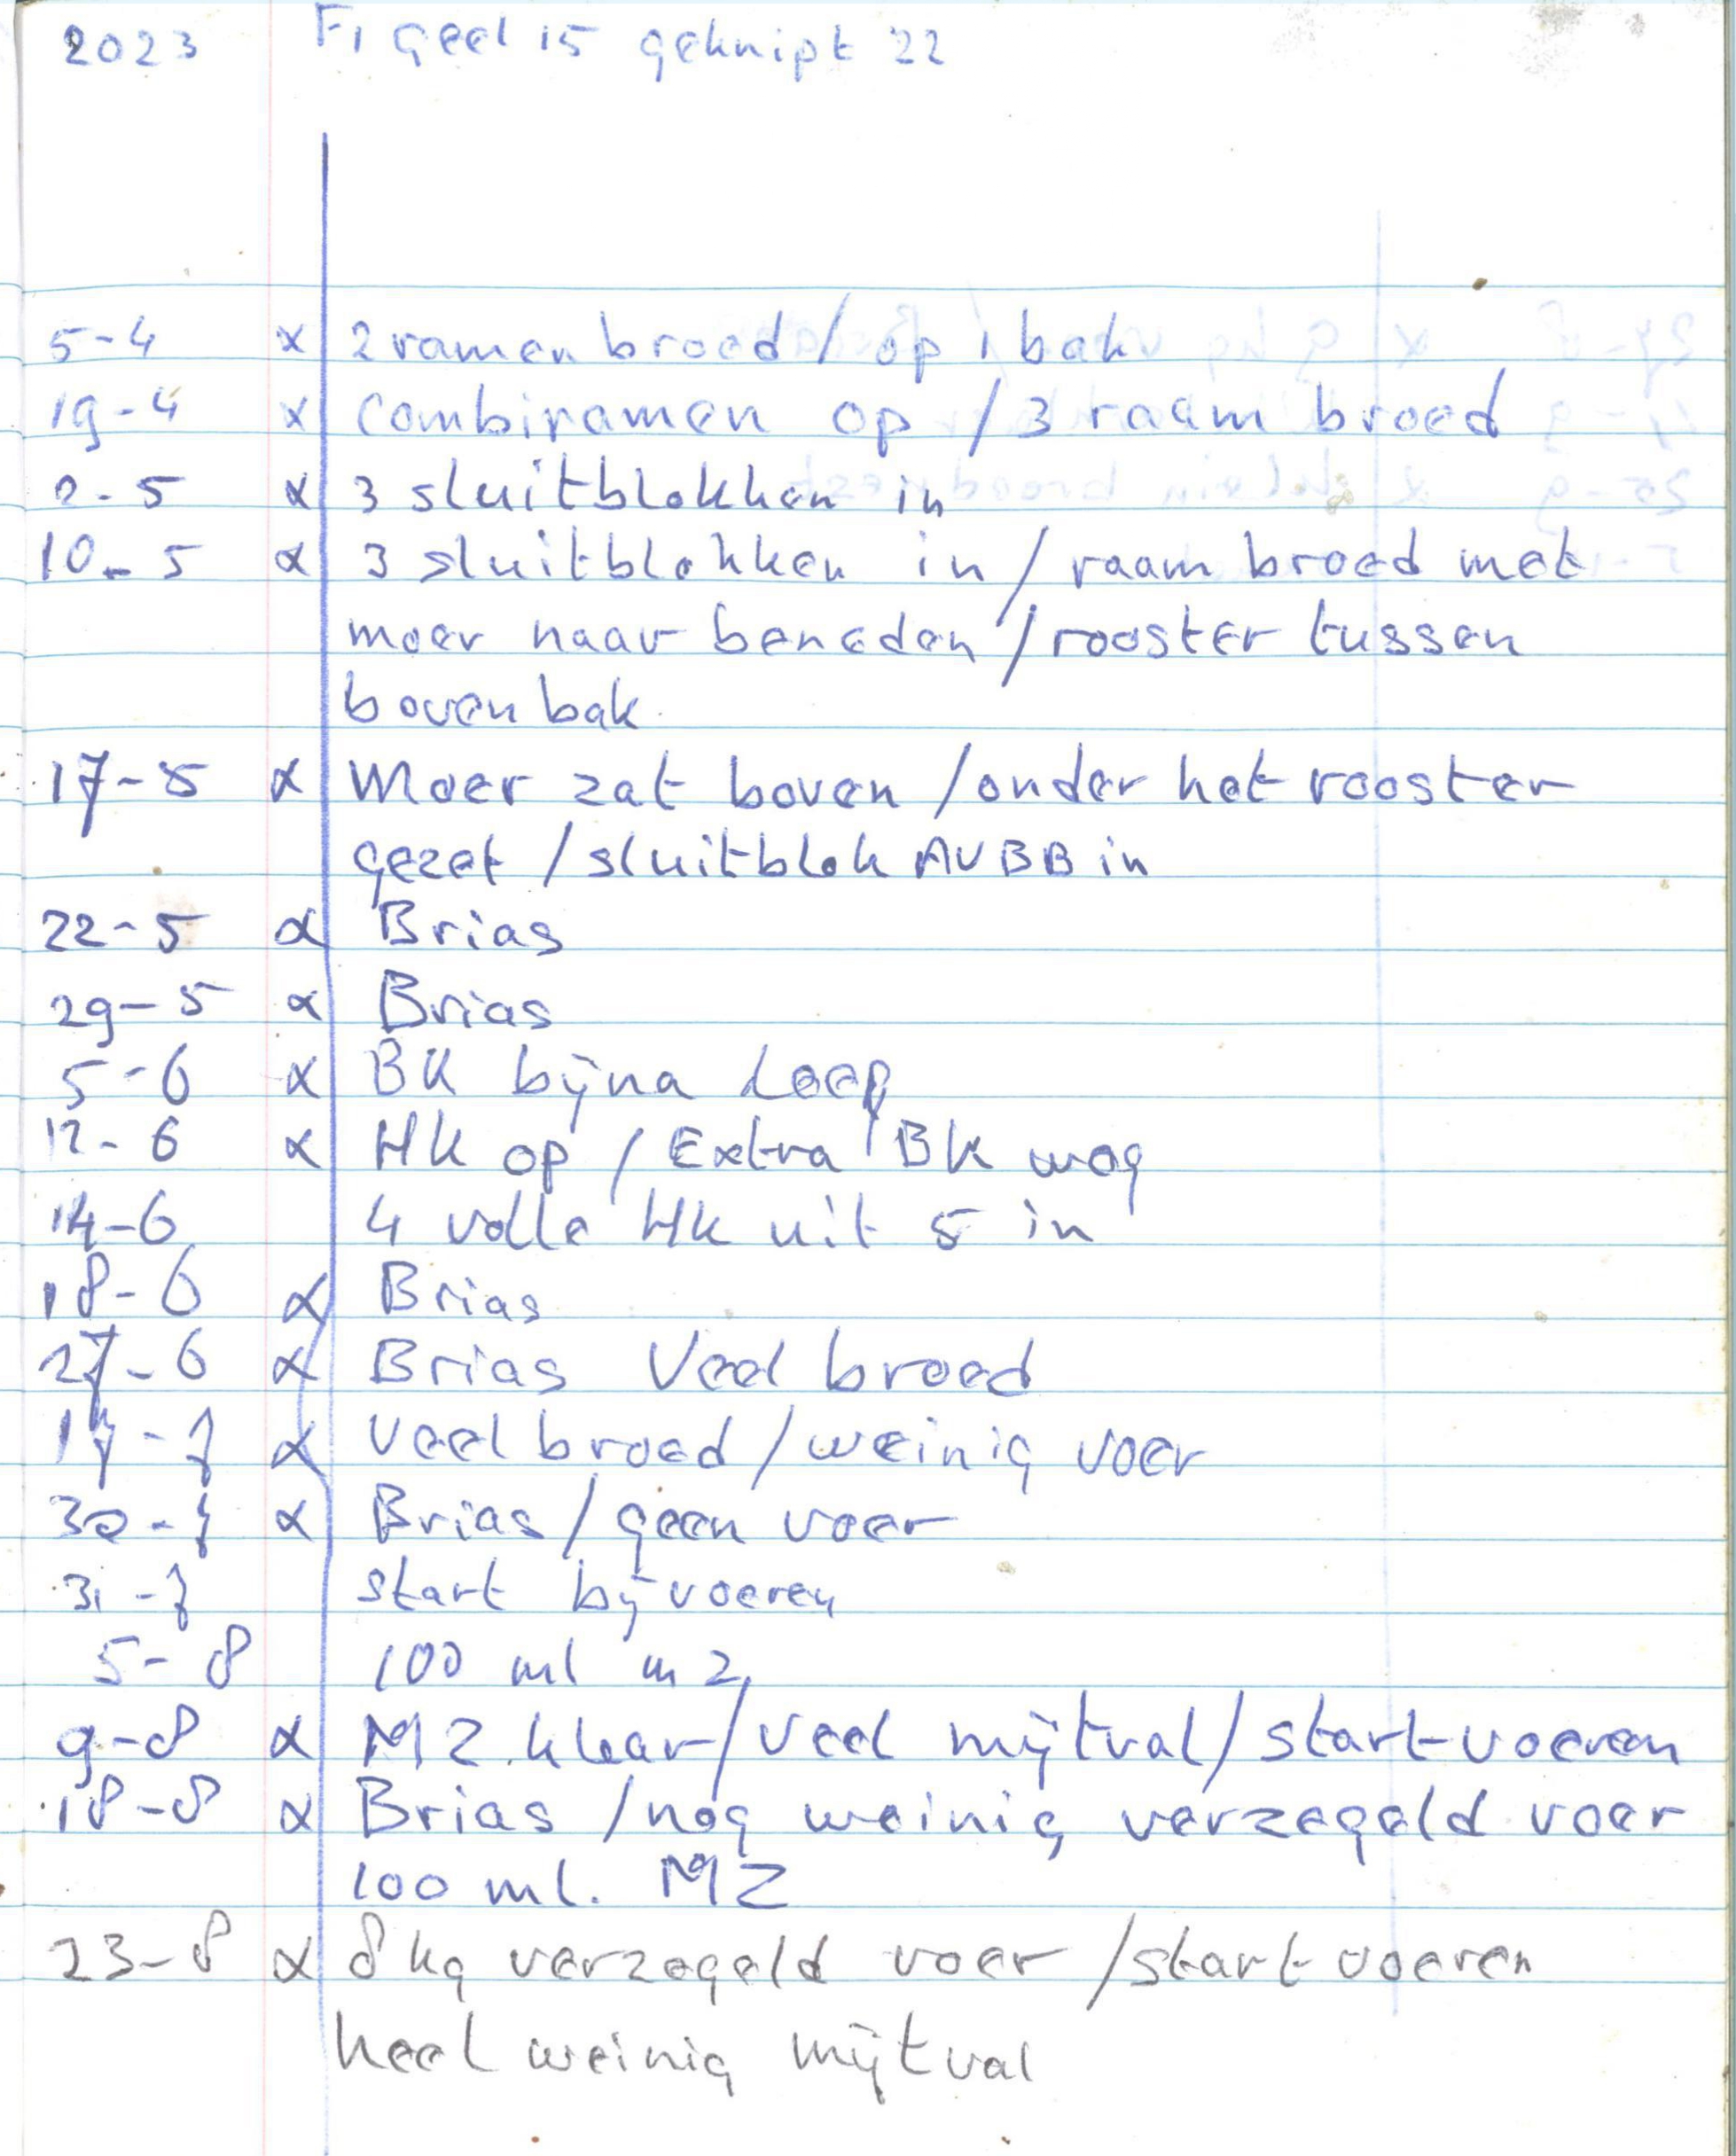 2023 F1 Geel 15 geknipt 22
5-4 x 2 ramen broed / op 1 bak
19-4 x Combiramen op / 3 raam broed
2-5 x 3 sluitblokken in
10-5 x 3 sluitblokken in / raam broed met
moer naar beneden / rooster tussen
bovenbak
17-5 x Moer zat boven / onder het rooster
gezet / sluitblok AVBB in
22-5 x Brias
29-5 x Brias
5-6 x BK bijna Leeg
12-6 x HK op / Extra BK weg
14-6 4 volle HK uit 5 in
18-6 x Brias
27-6 x Brias Veel broed
17-7 x Veel broed / weinig voer
30-7 x Brias / geen voer
31-7 start bijvoeren
5-8 100 ml m2
9-8 x MZ klaar / Veel mijtval / start voeren
18-8 x Brias / nog weinig verzegeld voer
100 ml. MZ
23-8 x 8 kg verzegeld voer / start voeren
heel weinig mijtval